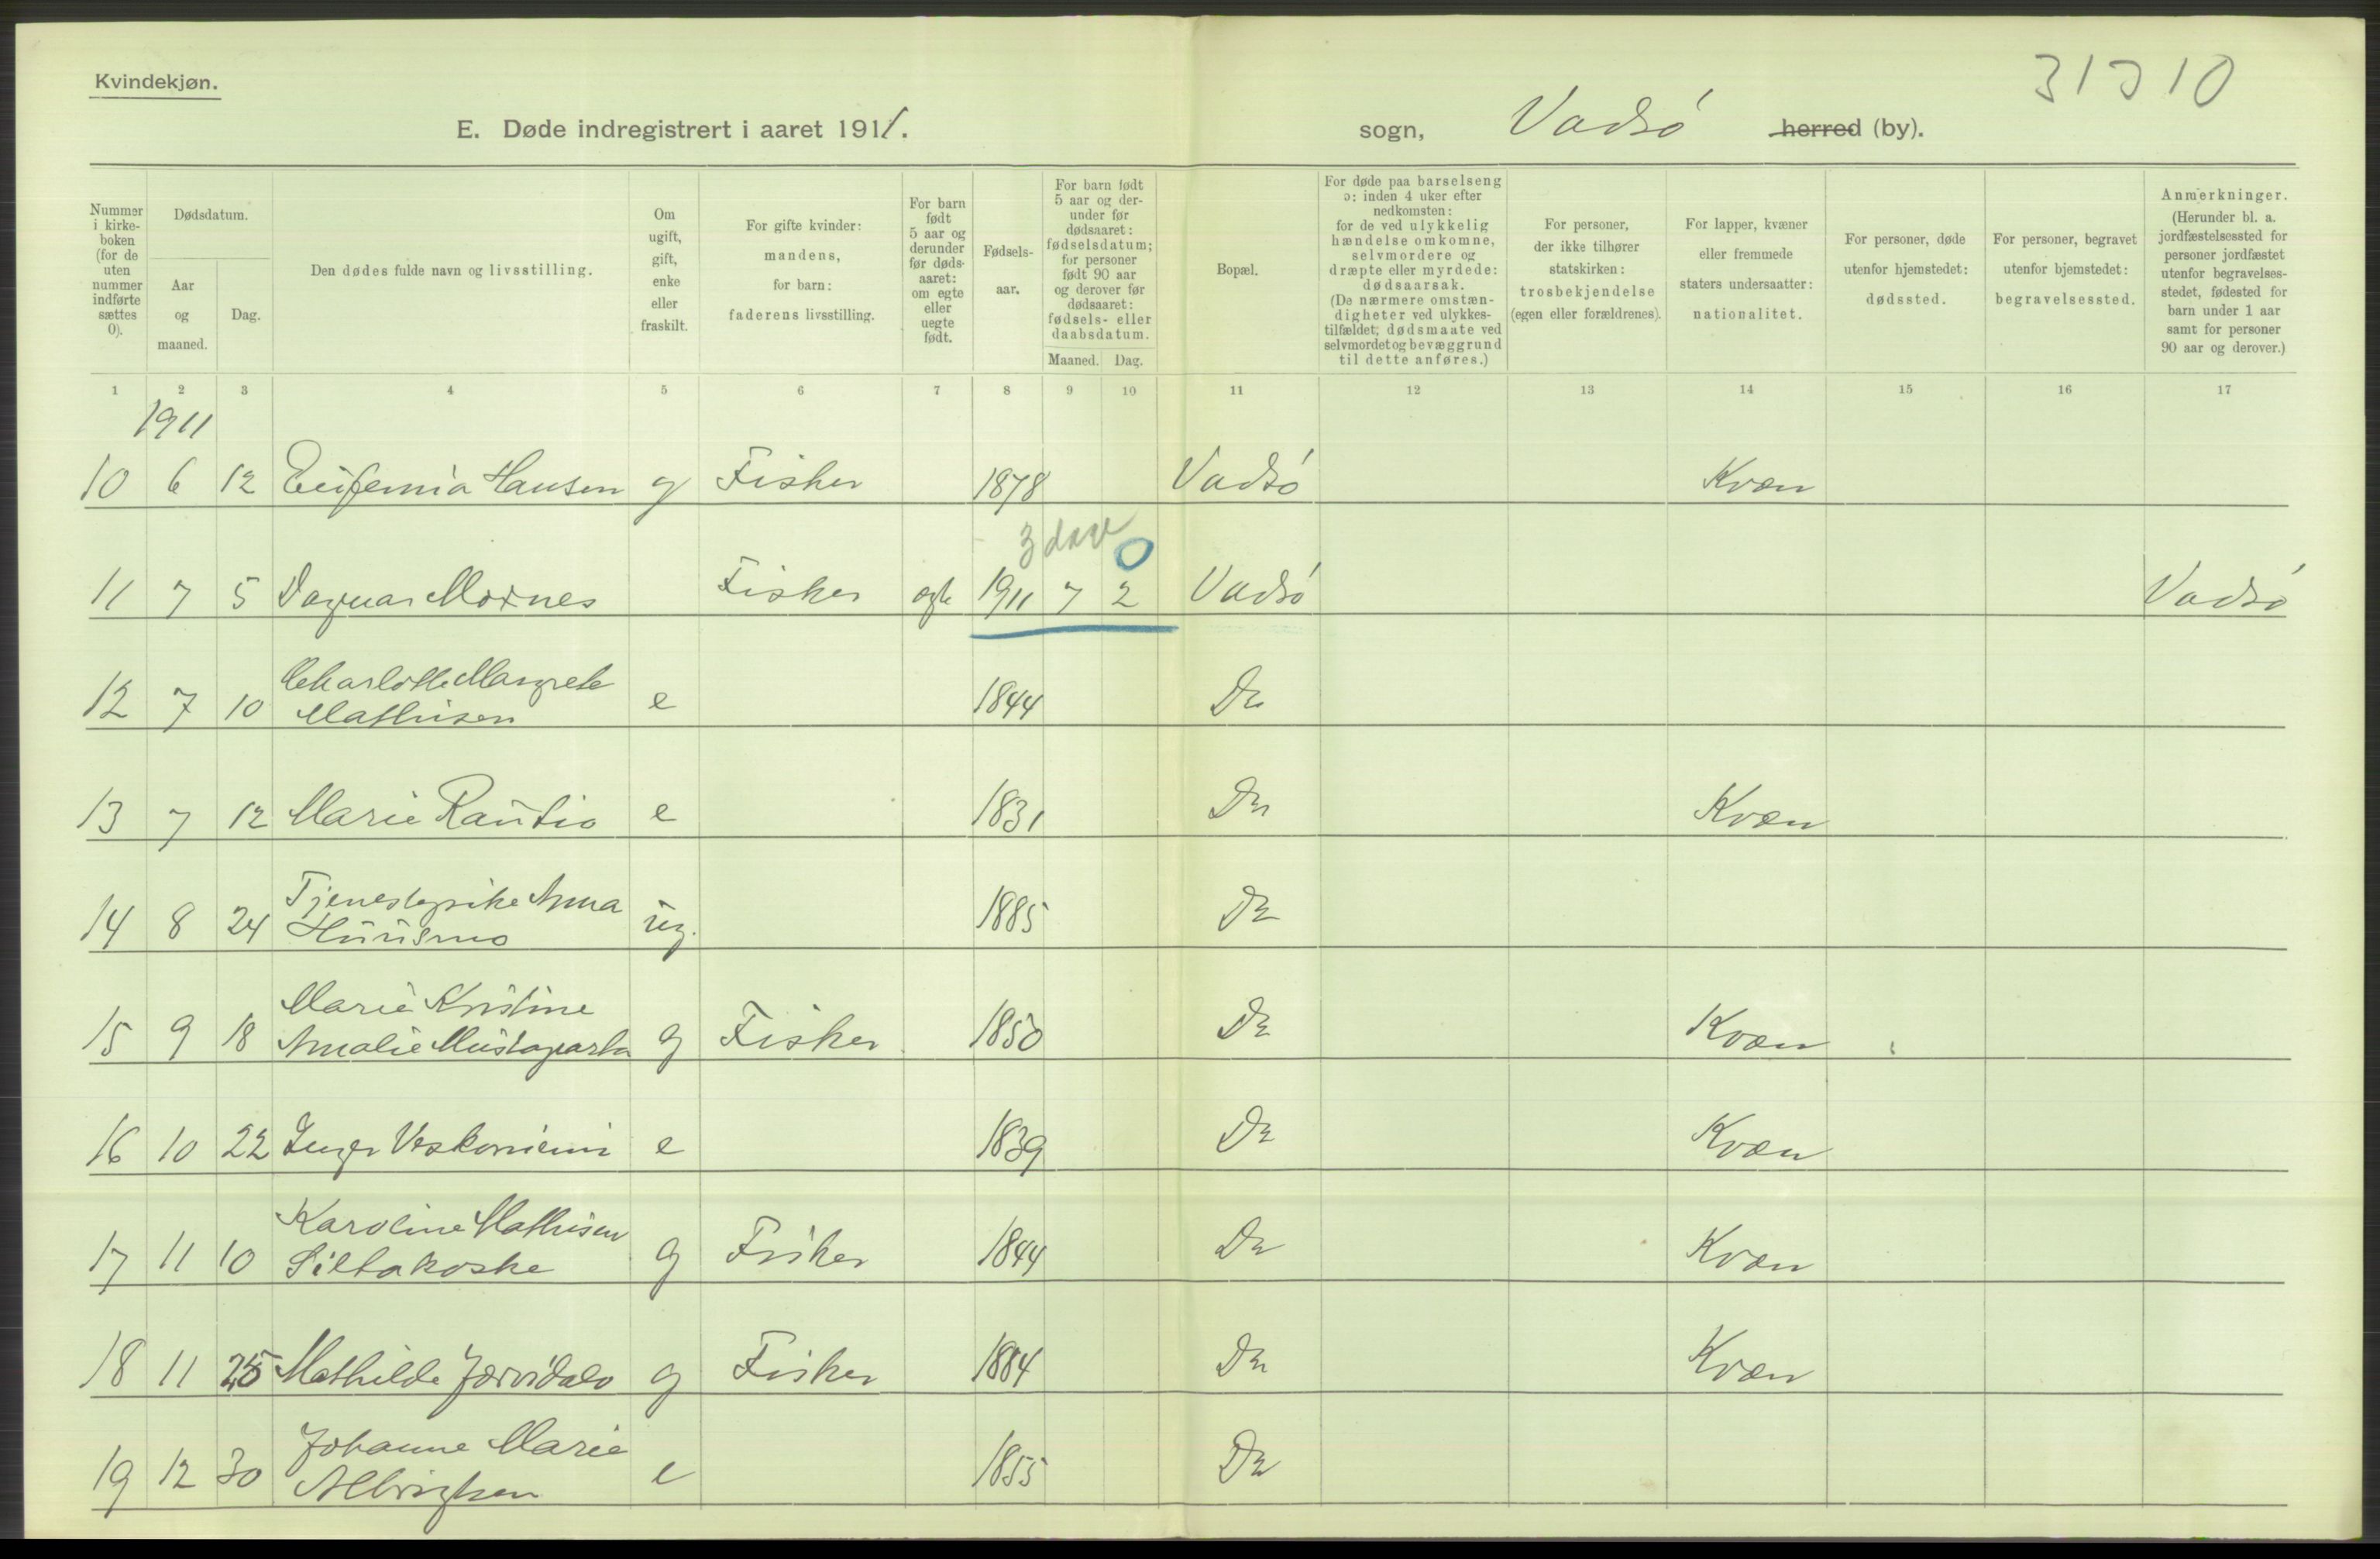 Kvindekjøn.
31310
E. Døde indregistrert i aaret 1911.
sogn, Vadsö herred (by).
Nummer i kirke-boken (for de uten nummer indførte sættes 0).
Dødsdatum.
Aar og maaned.
Dag.
Den dødes fulde navn og livsstilling.
Om ugift, gift, enke eller fraskilt.
For gifte kvinder: mandens, for barn: faderens livsstilling.
For barn født 5 aar og derunder før døds-aaret: om egte eller uegte født.
Fødsels-aar.
For barn født 5 aar og der-under før dødsaaret: fødselsdatum; for personer født 90 aar og derover før dødsaaret: fødsels- eller daabsdatum.
Maaned. Dag.
Bopæl.
For døde paa barselseng ɔ: inden 4 uker efter nedkomsten: for de ved ulykkelig hændelse omkomne, selvmordere og dræpte eller myrdede: dødsaarsak. (De nærmere omstæn-digheter ved ulykkes-tilfældet, dødsmaate ved selvmordet og bevæggrund til dette anføres.)
For personer, der ikke tilhører statskirken: trosbekjendelse (egen eller forældrenes).
For lapper, kvæner eller fremmede staters undersaatter: nationalitet.
For personer, døde utenfor hjemstedet: dødssted.
For personer, begravet utenfor hjemstedet: begravelsessted.
Anmerkninger. (Herunder bl. a. jordfæstelsessted for personer jordfæstet utenfor begravelses-stedet, fødested for barn under 1 aar samt for personer 90 aar og derover.)
1 2 3 4 5 6 7 8 9 10 11 12 13 14 15 16 17
1911
10 6 12 Eufemia Hansen g Fisker 1878 Vadsö Kvæn
3 dage 0
11 7 5 Dagmar Moxnes Fisker egte 1911 7 2 Vadsö Vadsö
Charlotte Margrete
12 7 10 Mathisen e 1844 Do
13 7 12 Marie Rautio e 1831 Do Kvæn
Tjenestepike Anna
14 8 24 Huusmo ug. 1885 Do
Marie Kristine
15 9 18 Amalie Mustaparta g Fisker 1850 Do Kvæn
16 10 22 Inger Veskoniemi e 1839 Do Kvæn
Karoline Mathisen
17 11 10 Siltakoske g Fisker 1844 Do Kvæn
18 11 25 Mathilde g Fisker 1884 Do Kvæn
Johanne Marie
19 12 30 Albrigtsen e 1855 Do